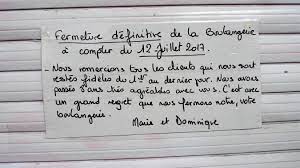 Fermeture définitive de la Boulangerie
à compter du 12 Juillet 2017.
Nous remercions tous les clients qui nous sont
restés fidèles du 1er au dernier jour. Nous avons
passés 3 ans très agréables avec vous. C'est avec
un grand regret que nous fermons notre, votre
boulangerie.
Marie et Dominique